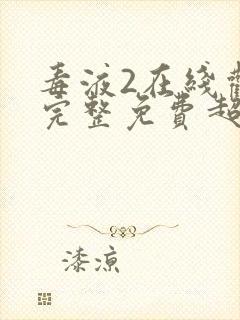 毒液2在线
完整免费超
漆凉